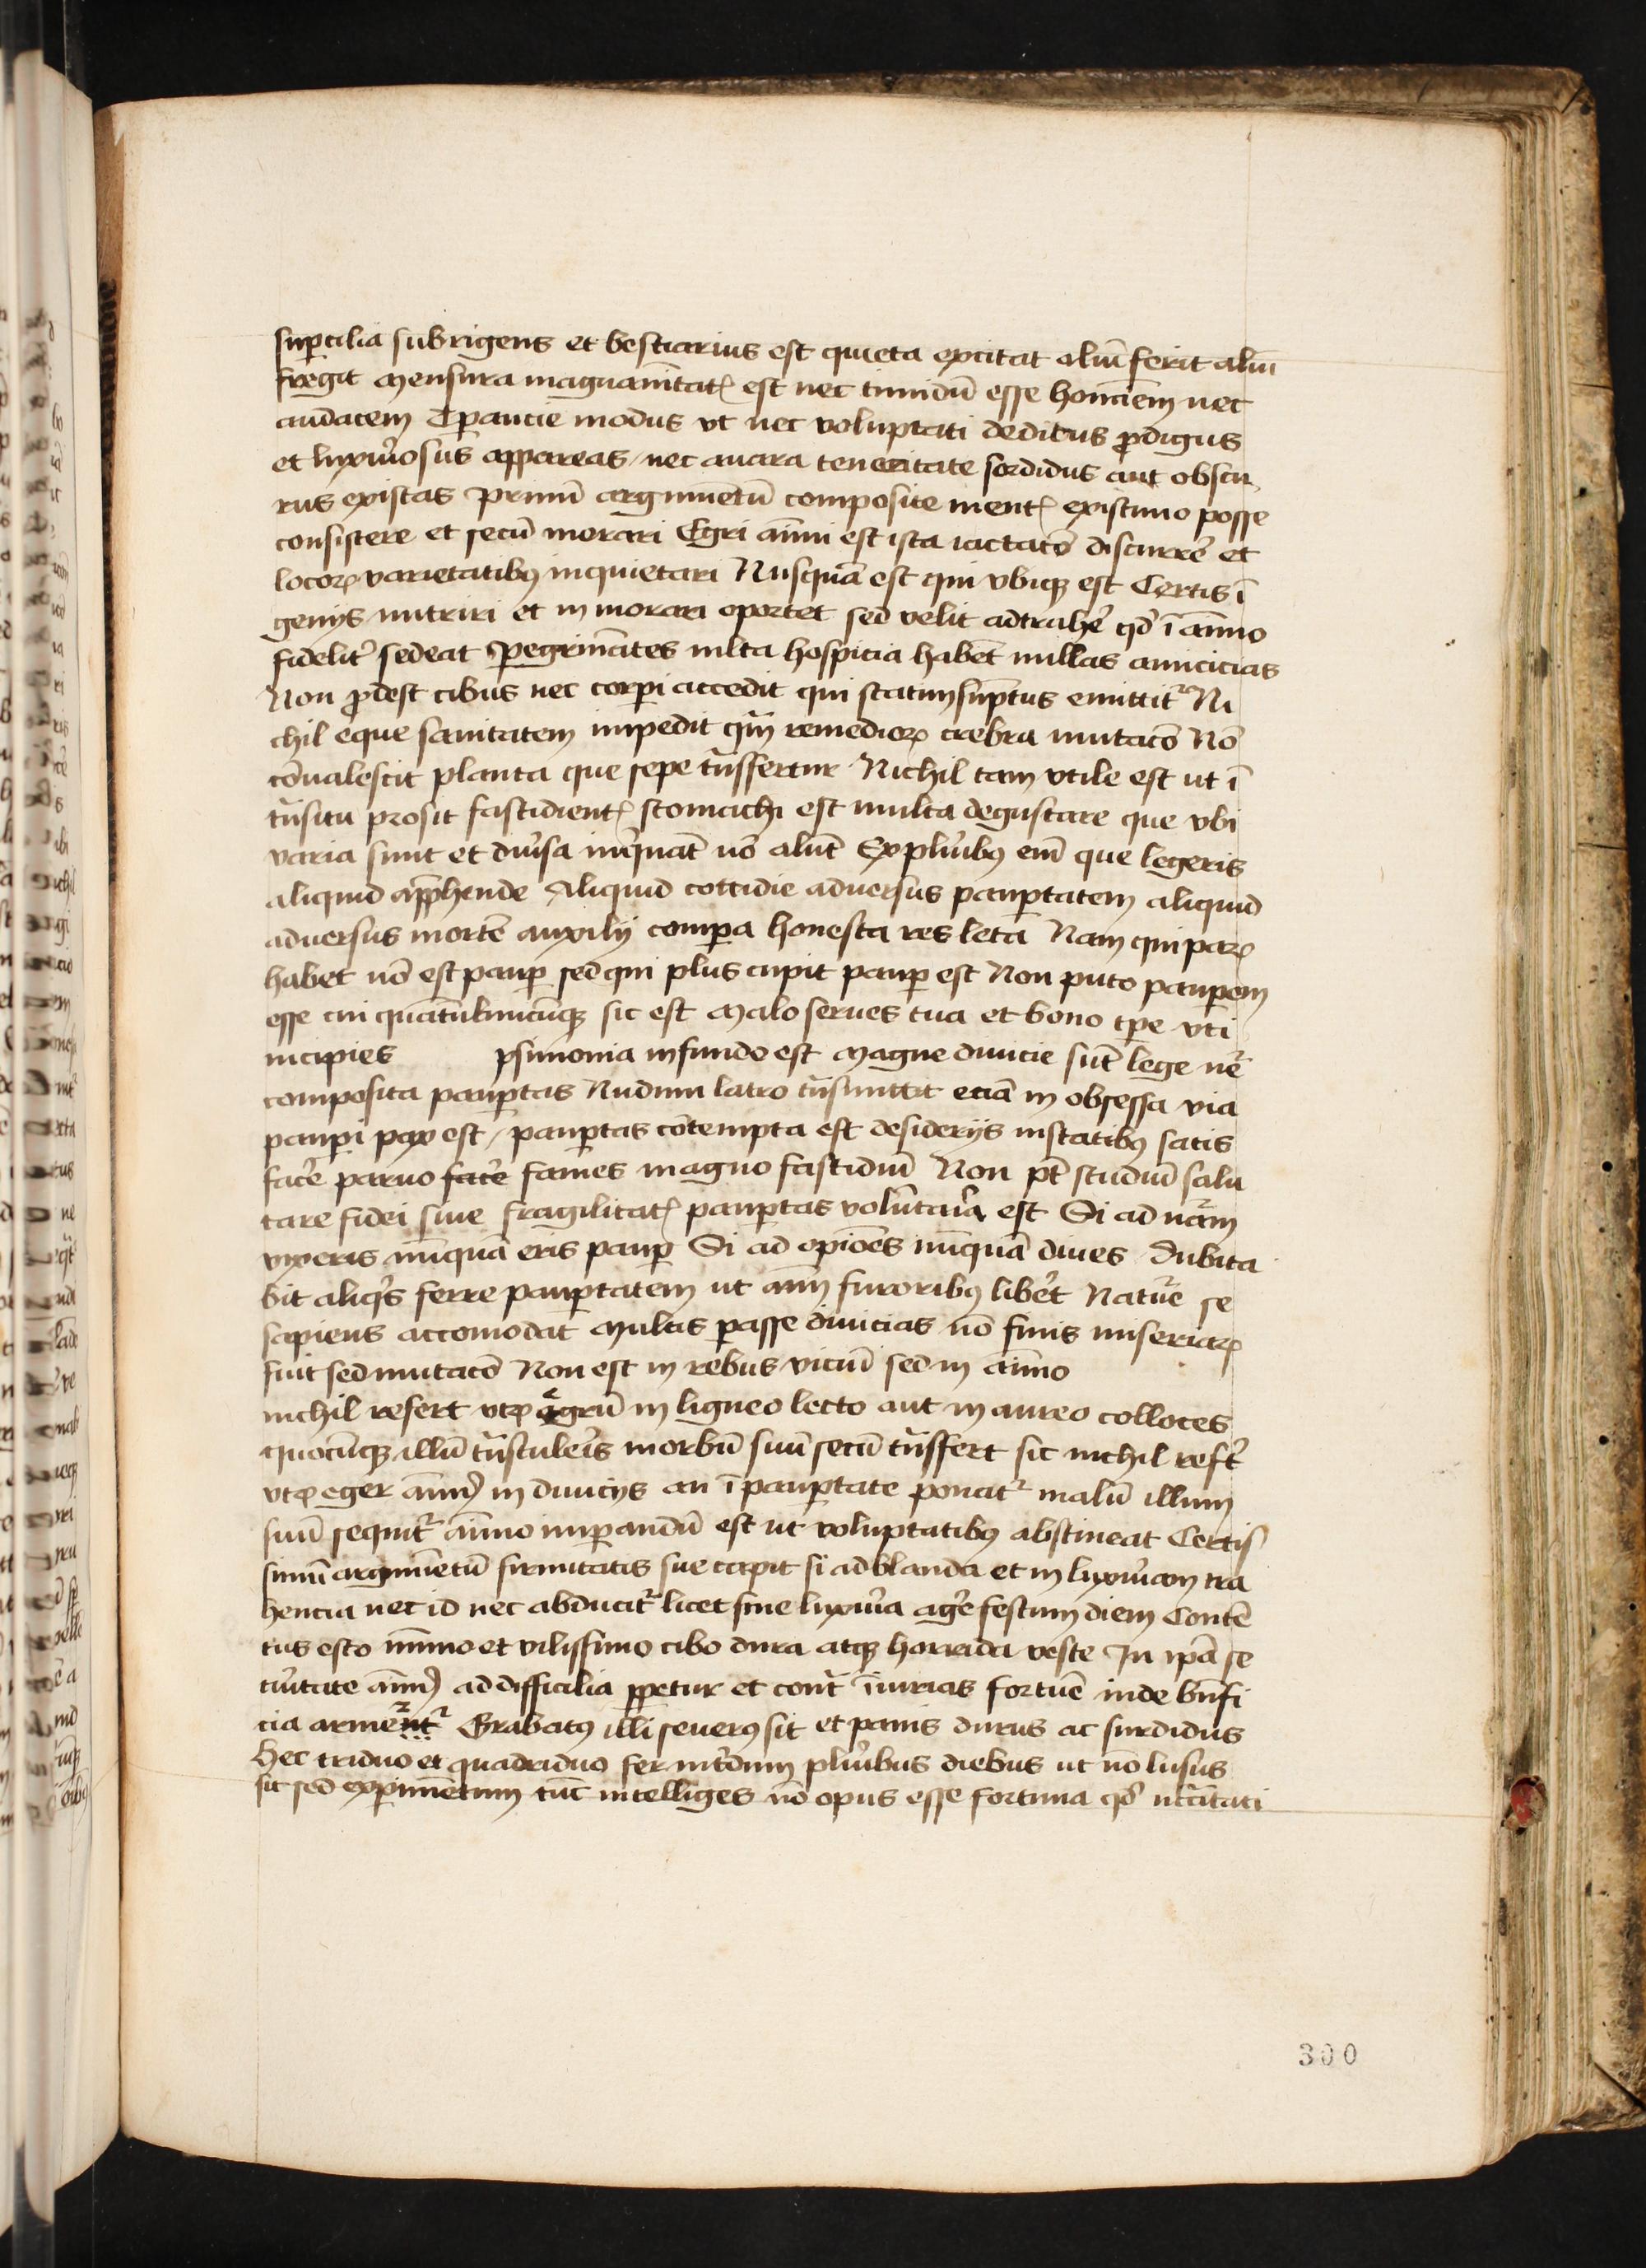 suꝑcilia subrigens et bestiarius est quieta excitat aliū ferit aliū
fregit Mensura magnanītatꝭ est nec timidū esse hoīem nec
audacem Tꝑancie modus vt nec voluptati deditus ꝓdigus
et luxuosus appareas / nec auara teneritate sordidus aut obscu
rus existas Primū argumētū composite mentꝭ existimo posse
consistere et secū morari Egri aīmi est ista iactatō discurrē et
locoꝝ varietatibꝰ inquietari Nusquā est qui vbiqꝫ est Certis ī
genijs nutriri et in morari oportet sed velit adtrahē qd̄ ī aīmo
fidelit̄ sedeat Peregrinātes mlta hospicia habēt nullas amicicias
Non ꝓdest cibus nec corꝑi accedit qui statim suꝑtus emittit᷑ Ni
chil eque sanitatem impedit qm̄ remedioꝝ crebra mutacō Nō
cōualescit planta que sepe tn̄sfertur Nichil tam vtile est ut ī
tn̄situ prosit fastidientꝭ stomachi est multa degustare que vbi
varia sunt et diūsa inqͥnāt nō alūt Ex pluribꝰ em̄ que legeris
aliquid apprhende Aliquid cottidie aduersus pauꝑtatem aliquid
aduersus mortē auxilij comꝑa honesta res letā Nam qui parꝝ
habet nō est pauꝑ sed qui plus cupit pauꝑ est Non puto pauꝑem
esse cui quātūlcuncūqꝫ sic est Malo serues tua et bono tꝑe vti
incipies ꝑsimonia in fundo est Magne diuicie sūt lege nē
composita pauꝑtas Nudum latro tn̄smittit eciā in obsessa via
pauꝑi pax est / pauꝑtas cōtempta est desiderijs instātibꝰ satis
facē paruo facē fames magno fastidiū Non pt̄ studiū salu
tare fidei sine fragilitatꝭ pauꝑtas volūtaria est Si ad nām
vixeris nūquā eris pauꝑ Si ad opiōes nūquā diues Dubita
bit aliqͥs ferre pauꝑtatem ut aīm furoribꝰ liberet Nature se
sapiens accomodat Multis ꝑasse diuicias nō finis miseriaꝝ
fuit sed mutacō Non est in rebus viciū sed in aīmo
nichil refert vtꝝ egrū in ligneo lecto aut in aureo colloces
quocūqꝫ illū tn̄stuleris morbū suū secū tn̄sfert sic nichil refert
vtꝝ eger aīmꝰ in diuicijs an ī pauꝑtate ponat᷑ malū illum
suū sequit᷑ aīmo imꝑandū est ut voluptatibꝰ abstineat Certis
simū argumētū firmitatis sue capit si ad blanda et in luxuriam tra
hencia nec id nec abducit᷑ licet sine luxuria agē festum diem Contē
tus esto mīmo et vilissimo cibo dura atqꝫ horrida veste In ipā se
curitate aīmꝰ ad difficilia ppetur et cont̄ īiurias fortune inde bn̄fi
cia armēnt᷑ Grabatꝰ illi seuerꝰ sit et panis durus ac surdidus
Hec triduo et quadriduo fer int̄dum pluribus diebus ut nō lusus
sit sed exꝑimētum tūc intelliges nō opus esse fortuna qd̄ nc̄citati
300